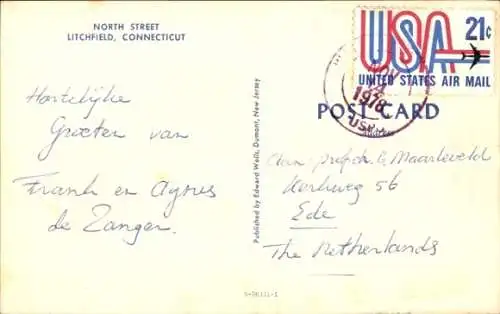 NORTH STREET
LITCHFIELD, CONNECTICUT
Hartelijke
Groeten van
Frank en Agnes
de Zanger.
Published by Edward Wells, Dumont, New Jersey
USA 21c
UNITED STATES AIR MAIL
NOV
1978
USPS
POST CARD
Address
Aan prof. dr. G. Maarleveld
Kerkweg 56
Ede
The Netherlands